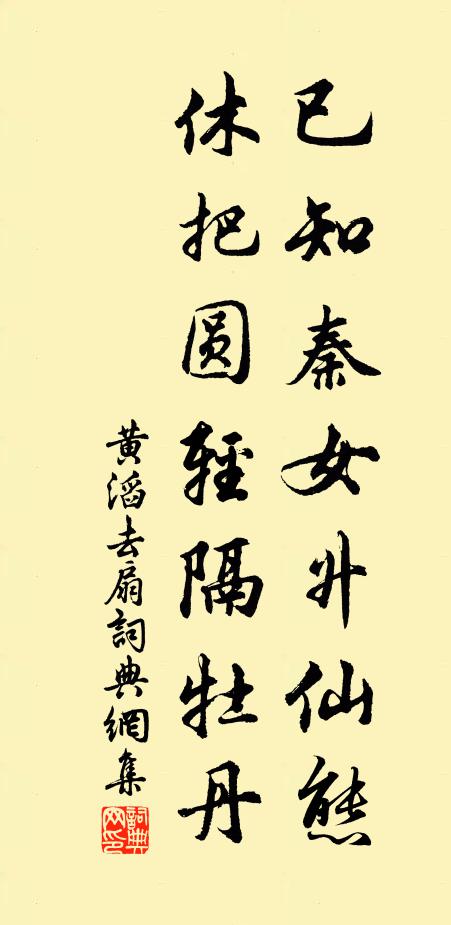 已知秦女升仙態
休把圓輕隔牡丹
黄滔去扇詞典網集
詞典
网印